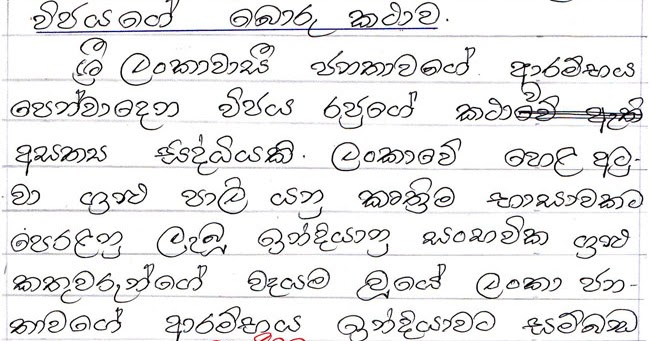 විජයගේ බොරු කථාව.
ශ්‍රී ලංකාවාසී ජනතාවගේ ආරම්භය
පෙන්වාදෙන විජය රජුගේ කථාව
අසත්‍ය සිද්ධියකි. ලංකාවේ හෙළ අටු-
වා ග්‍රන්‍ථ පාලි යනු කෘත්‍රිම භාසාවකට
පෙරළනු ලැබූ ඉන්දියානු සංභවික ග්‍රන්‍ථ
කතුවරුන්ගේ වදයම වූයේ ලංකා ජන-
තාවගේ ආරම්භය ඉන්දියාවට සම්බන්‍ධ